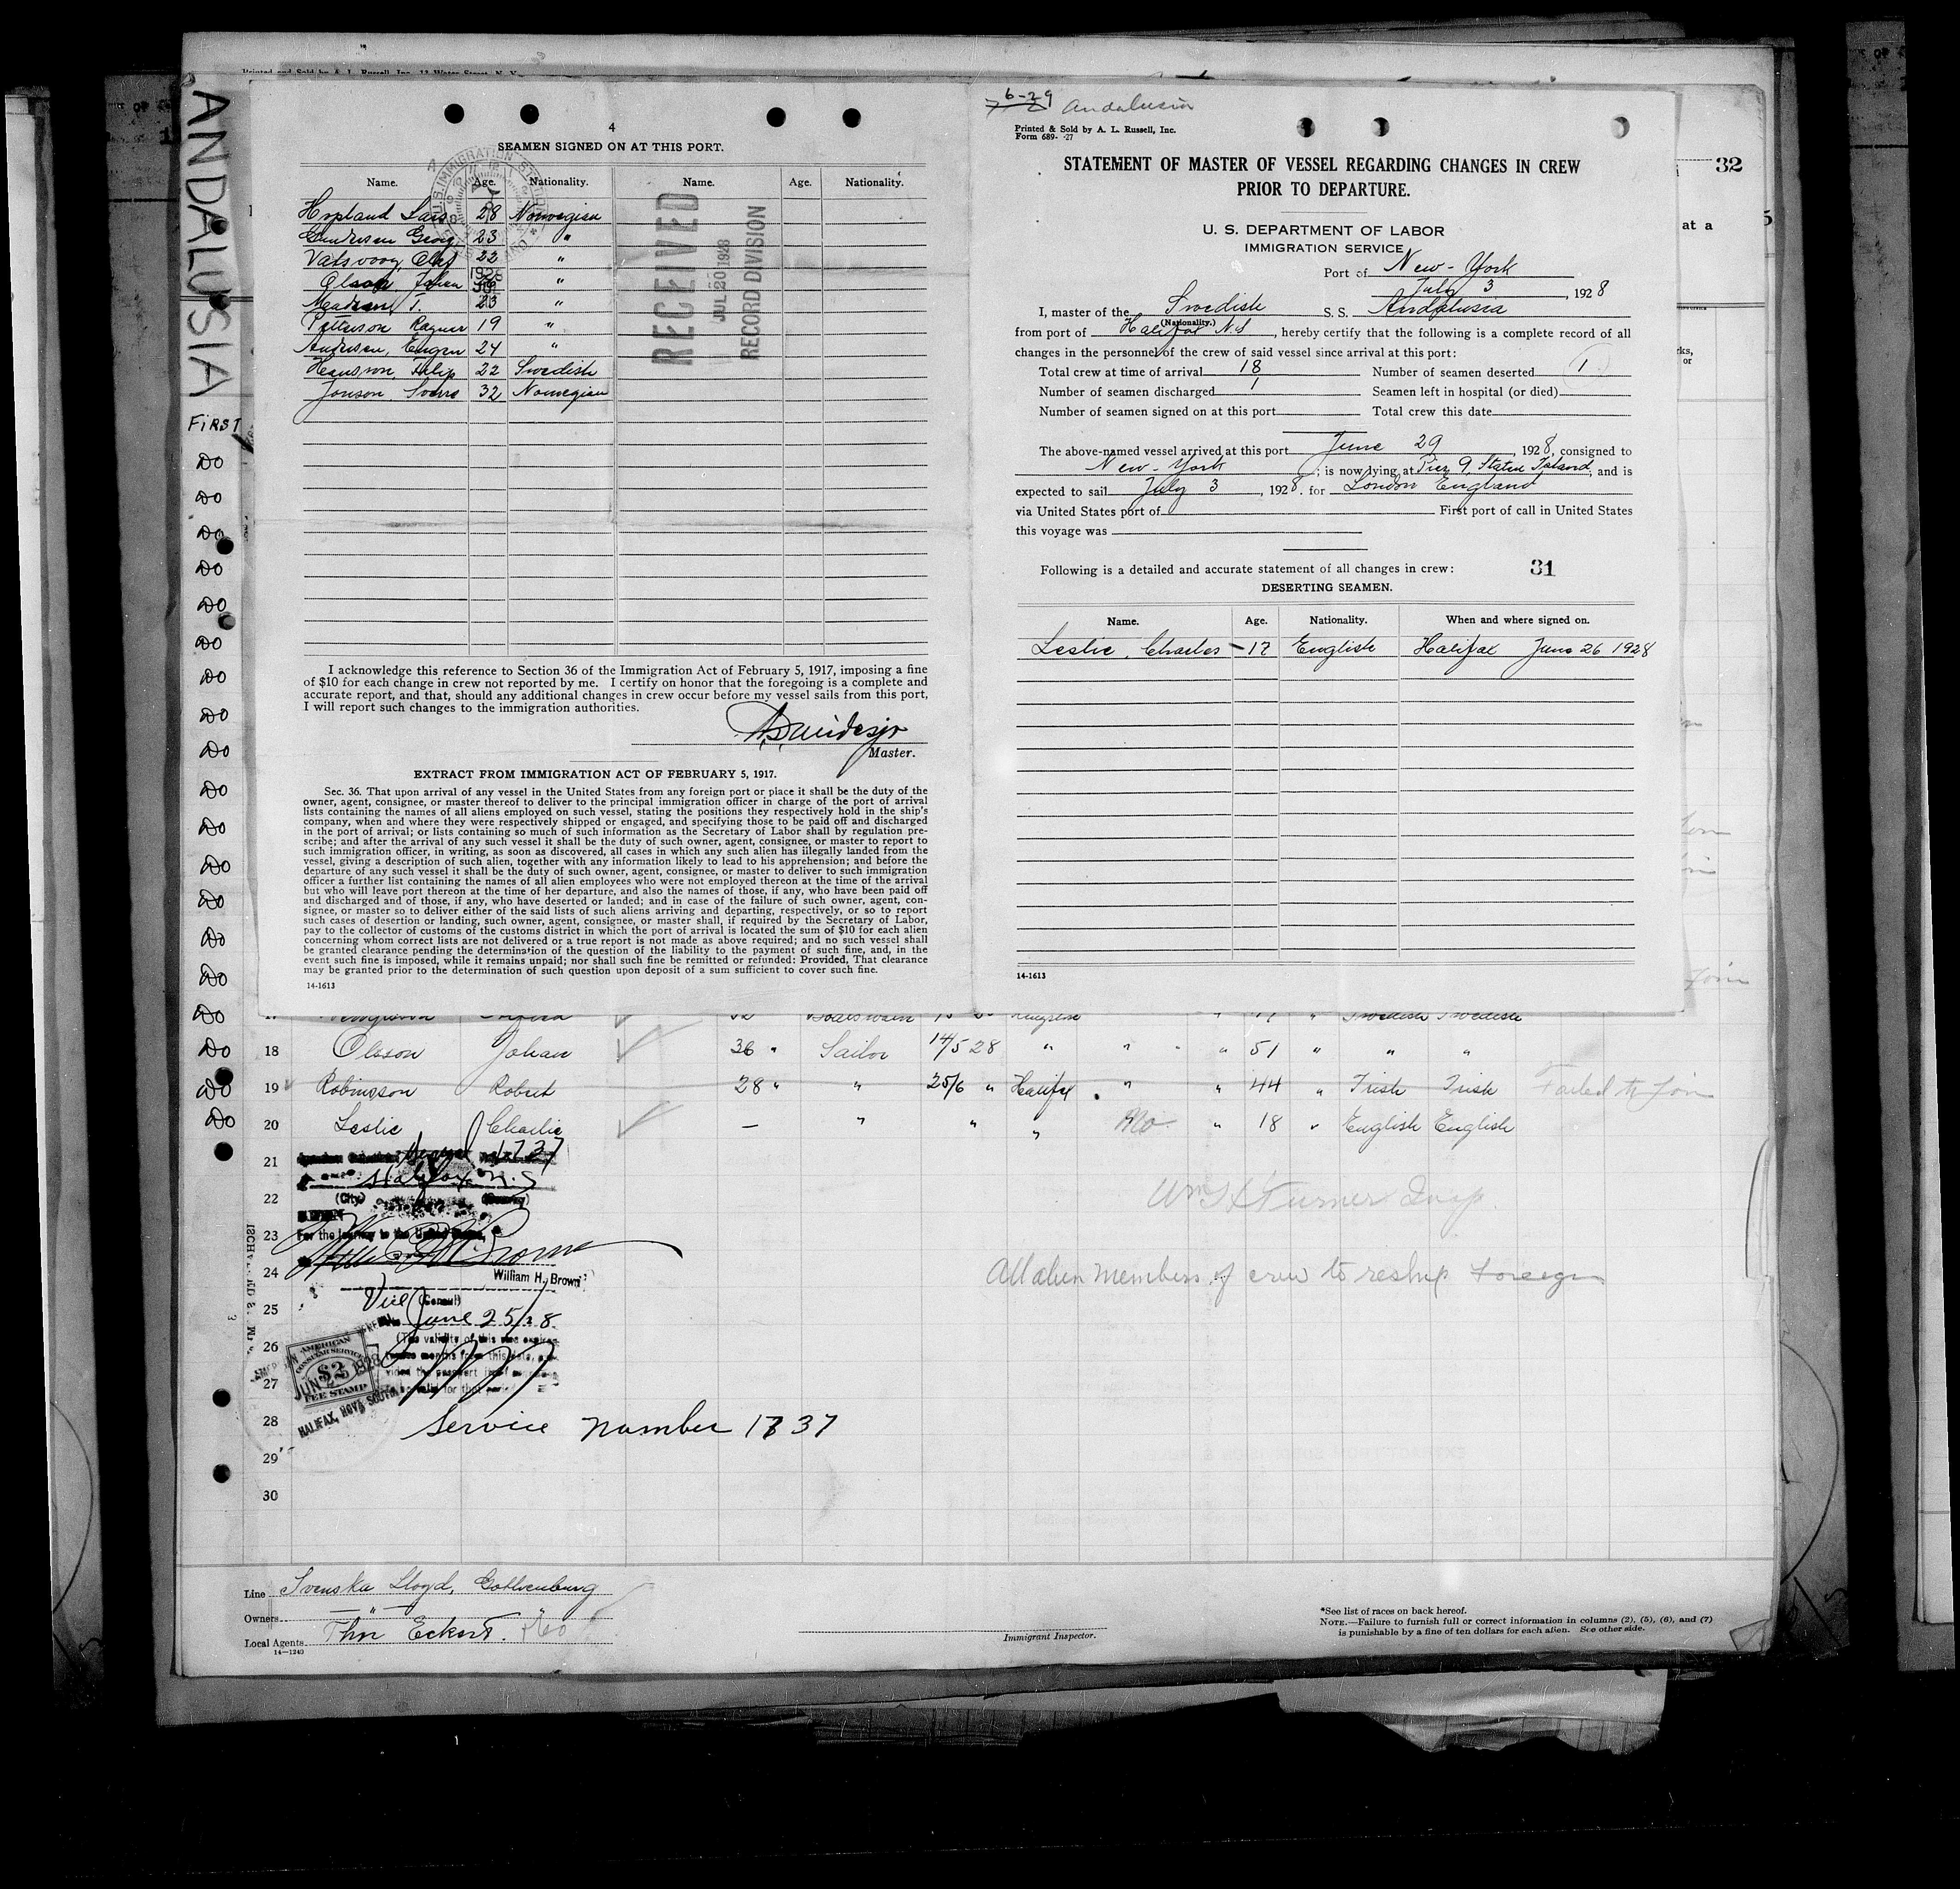 ANDALUSIA
FIRST
DO
DO
DO
DO
DO
DO
DO
DO
DO
DO
DO
DO
DO
DO
DO
DO
DO
DO
DO
Printed and Sold by A. L. Russell, Inc. 12 Water Street, N. Y.
4
SEAMEN SIGNED ON AT THIS PORT.
Name. Age. Nationality. Name. Age. Nationality.
Hopland Lars 28 Norwegian
Georg 23 "
Olaf 22 "
1928
Olsson, Johan "
Madsen T. 23 "
Petterson Ragner 19 "
Andersen, Eugen 24 "
Filip 22 Swedish
Jonson, 32 Norwegian
RECEIVED
JUL 20 1928
RECORD DIVISION
I acknowledge this reference to Section 36 of the Immigration Act of February 5, 1917, imposing a fine
of $10 for each change in crew not reported by me. I certify on honor that the foregoing is a complete and
accurate report, and that, should any additional changes in crew occur before my vessel sails from this port,
I will report such changes to the immigration authorities.
Master.
EXTRACT FROM IMMIGRATION ACT OF FEBRUARY 5, 1917.
Sec. 36. That upon arrival of any vessel in the United States from any foreign port or place it shall be the duty of the
owner, agent, consignee, or master thereof to deliver to the principal immigration officer in charge of the port of arrival
lists containing the names of all aliens employed on such vessel, stating the positions they respectively hold in the ship's
company, when and where they were respectively shipped or engaged, and specifying those to be paid off and discharged
in the port of arrival; or lists containing so much of such information as the Secretary of Labor shall by regulation pre-
scribe; and after the arrival of any such vessel it shall be the duty of such owner, agent, consignee, or master to report to
such immigration officer, in writing, as soon as discovered, all cases in which any such alien has illegally landed from the
vessel, giving a description of such alien, together with any information likely to lead to his apprehension; and before the
departure of any such vessel it shall be the duty of such owner, agent, consignee, or master to deliver to such immigration
officer a further list containing the names of all alien employees who were not employed thereon at the time of the arrival
but who will leave port thereon at the time of her departure, and also the names of those, if any, who have been paid off
and discharged and of those, if any, who have deserted or landed; and in case of the failure of such owner, agent, con-
signee, or master so to deliver either of the said lists of such aliens arriving and departing, respectively, or so to report
such cases of desertion or landing, such owner, agent, consignee, or master shall, if required by the Secretary of Labor,
pay to the collector of customs of the customs district in which the port of arrival is located the sum of $10 for each alien
concerning whom correct lists are not delivered or a true report is not made as above required; and no such vessel shall
be granted clearance pending the determination of the question of the liability to the payment of such fine, and, in the
event such fine is imposed, while it remains unpaid; nor shall such fine be remitted or refunded: Provided, That clearance
may be granted prior to the determination of such question upon deposit of a sum sufficient to cover such fine.
14-1613
6-29 Andalusia
Printed & Sold by A. L. Russell, Inc.
Form 689- -27
STATEMENT OF MASTER OF VESSEL REGARDING CHANGES IN CREW
PRIOR TO DEPARTURE.
U. S. DEPARTMENT OF LABOR
IMMIGRATION SERVICE
Port of New-York
July 3, 1928
I, master of the Swedish S. S. Andalusia
(Nationality.)
from port of Halifax N.S, hereby certify that the following is a complete record of all
changes in the personnel of the crew of said vessel since arrival at this port:
Total crew at time of arrival 18 Number of seamen deserted 1
Number of seamen discharged 1 Seamen left in hospital (or died)
Number of seamen signed on at this port Total crew this date
The above-named vessel arrived at this port June 29, 1928, consigned to
New-York; is now lying at Pier 9, Staten Island, and is
expected to sail July 3, 1928. for London England
via United States port of First port of call in United States
this voyage was
Following is a detailed and accurate statement of all changes in crew: 31
DESERTING SEAMEN.
Name. Age. Nationality. When and where signed on.
Leslie, Charles - 17 English Halifax June 26 1928
14-1613
32
at a
ks,
or
18 Olsson Johan 36 " Sailor 14/5 28 " " " " 51 " " "
19 Robinsson Robert 28 " " 25/6 " Halifax " " 44 " Irish Irish Failed to Join
20 Leslie Charlie - " " " No " 18 " English English
21 1737
22 Halifax N.S
(City) (Country)
23 For the journey to the United States,
24 William H. Brown
Vice (Consul)
25 June 25/28.
26 (The validity of this visa expires
twelve months from this date, pro-
27
28 Service number 1737
29
30
AMERICAN
CONSULAR SERVICE
$2
FEE STAMP
JUN 1928
HALIFAX, NOVA SCOTIA
Wm Turner Insp.
All alien members of crew to reship foreign
Line Svenska Lloyd, Gothenburg
Owners "
Local Agents Thor Eckert. & Co
14-1240
Immigrant Inspector.
*See list of races on back hereof.
NOTE.—Failure to furnish full or correct information in columns (2), (5), (6), and (7)
is punishable by a fine of ten dollars for each alien. See other side.